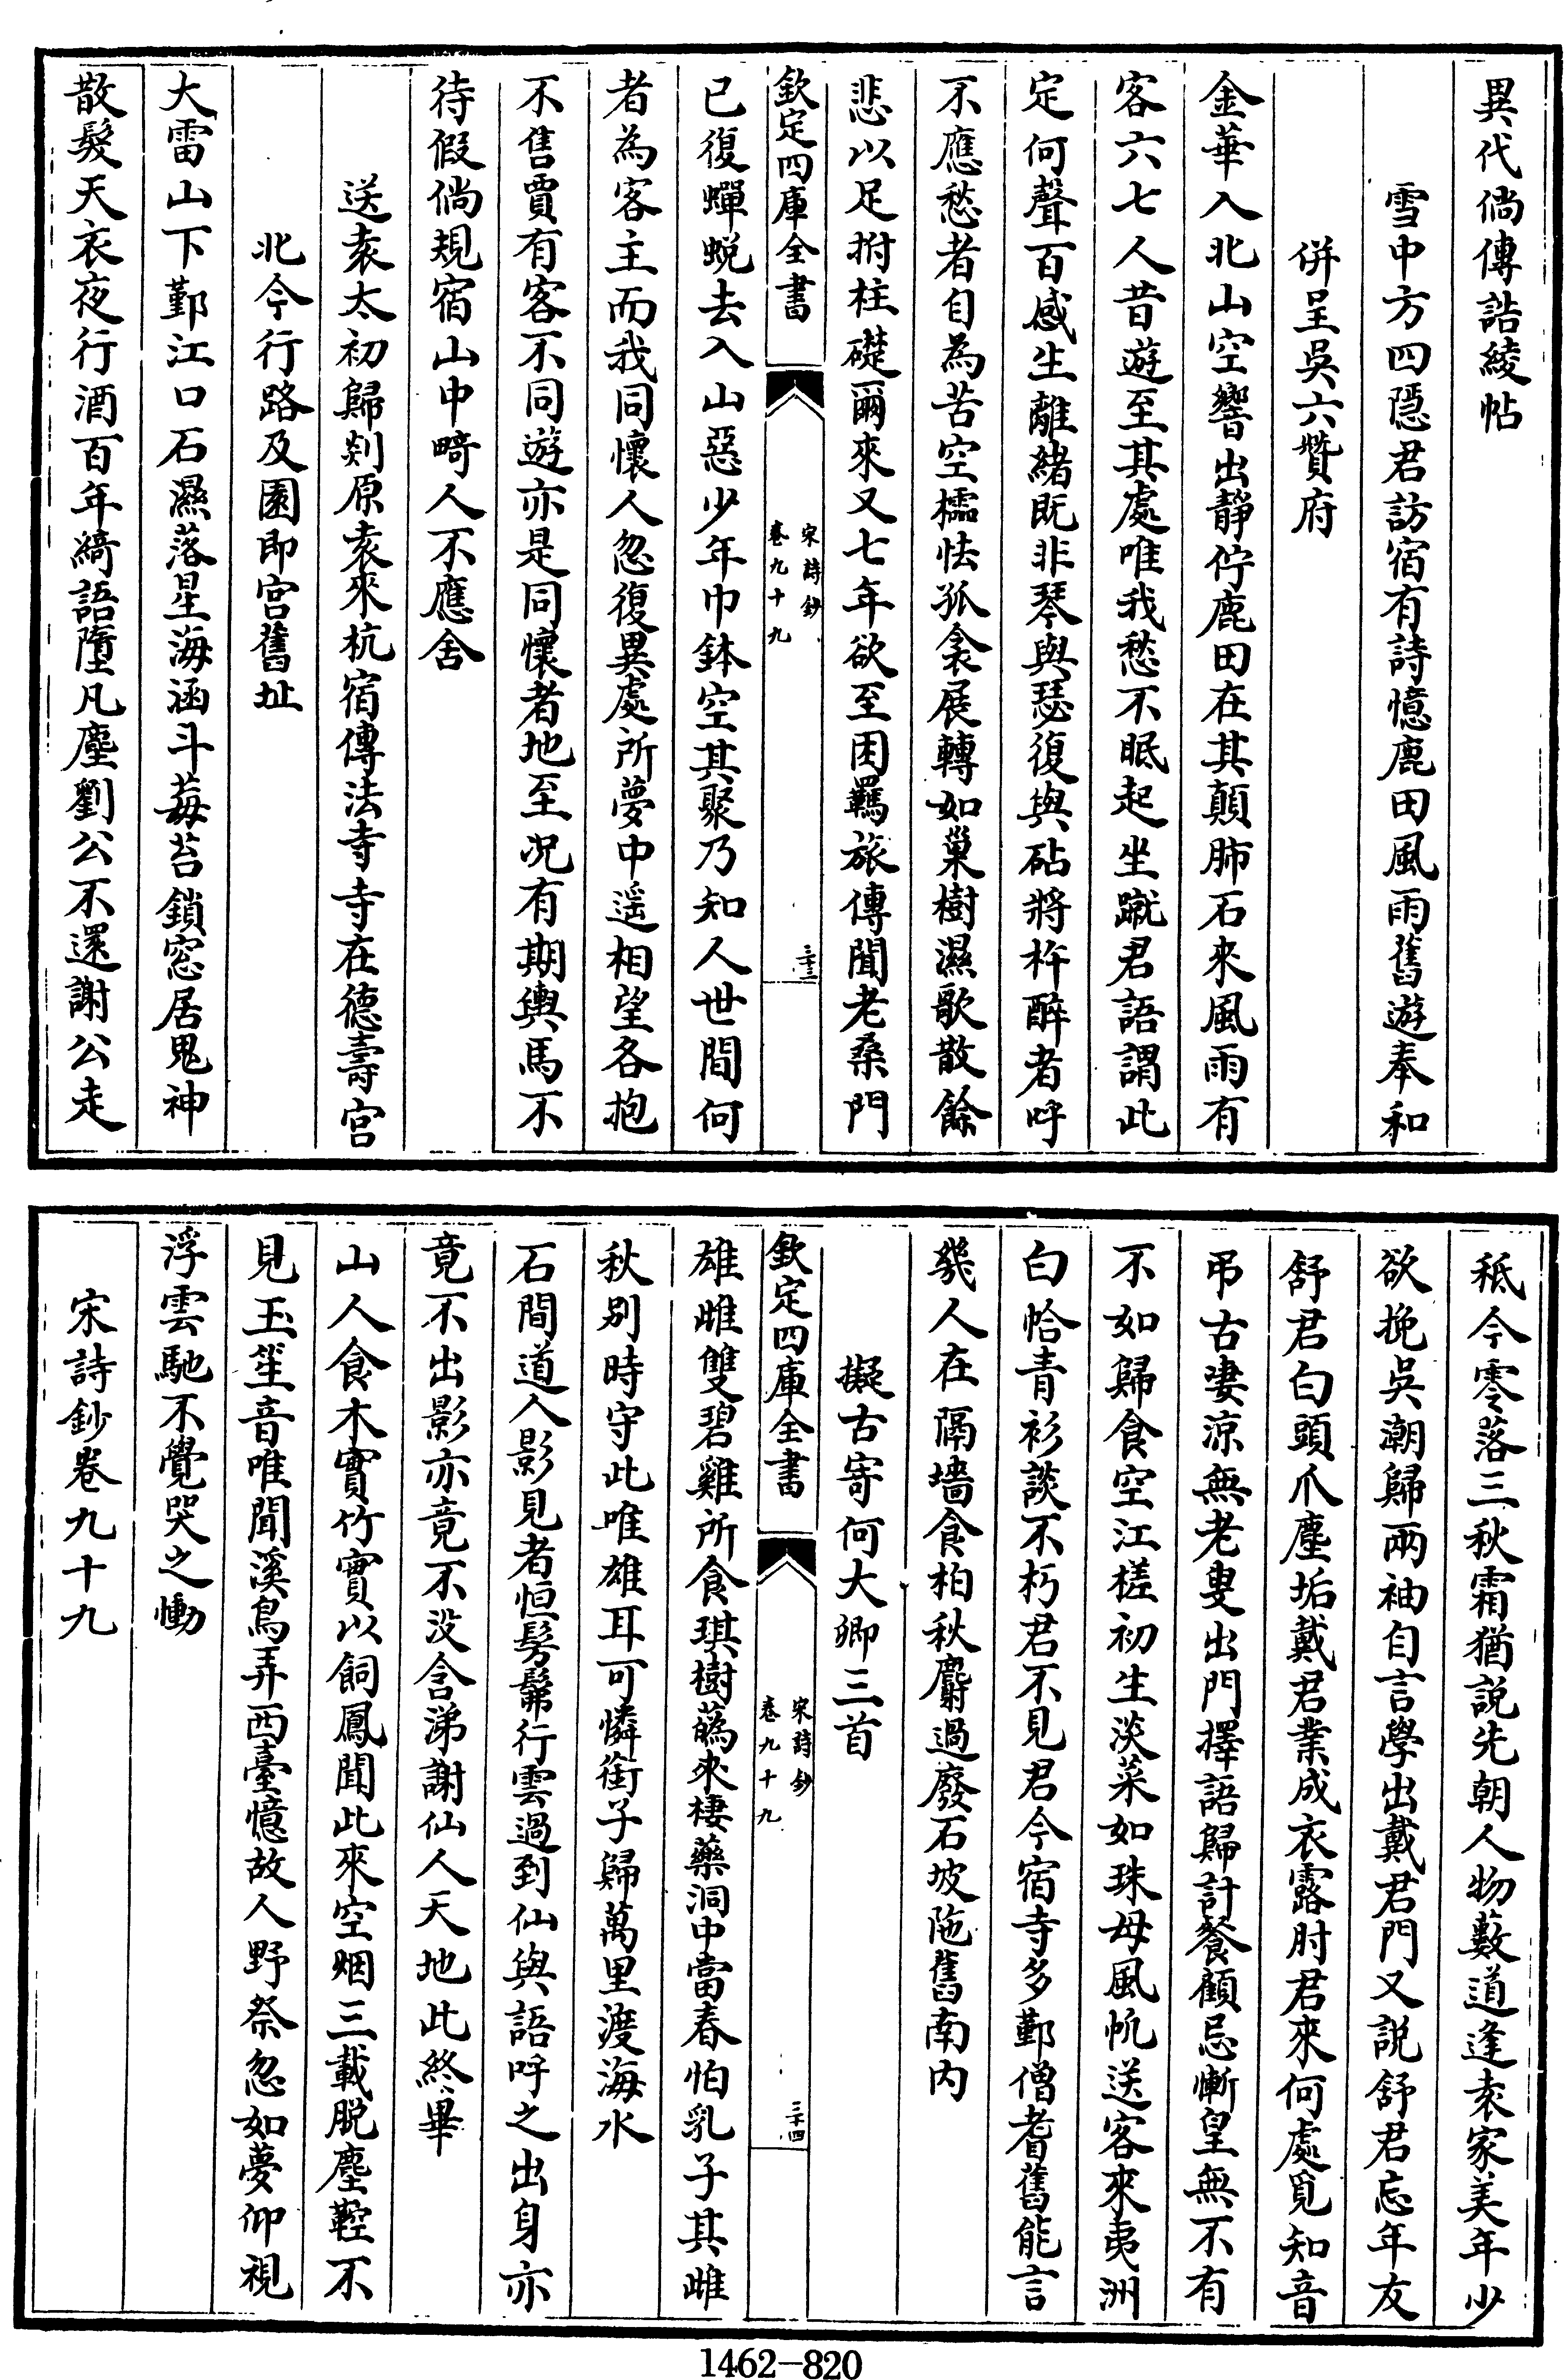 異代倘傳誥綾帖
雪中方四隱君訪宿有詩憶鹿田風雨舊遊奉和
併呈吳六贊府
金華入北山空響出靜佇鹿田在其顛肺石來風雨有
客六七人昔遊至其處唯我愁不眠起坐蹴君語謂此
定何聲百感生離緒既非琴與瑟復與砧將杵醉者呼
不應愁者自為苦空櫺怯孤衾展轉如巢樹濕歌散餘
悲以足拊柱礎爾來又七年欲至困羈旅傳聞老桑門
欽定四庫全書
宋詩鈔
卷九十九
三十三
已復蟬蛻去入山惡少年巾鉢空其聚乃知人世間何
者為客主而我同懷人忽復異處所夢中遥相望各抱
不售賈有客不同遊亦是同懷者地至况有期輿馬不
待假倘規宿山中畸人不應舍
送袁太初歸剡原袁來杭宿傳法寺寺在德壽宮
北今行路及園即宮舊址
大雷山下鄞江口石濕落星海涵斗莓苔鎖窓居鬼神
散髮天衣夜行酒百年綺語墮凡塵劉公不還謝公走
秪今零落三秋霜猶說先朝人物藪道逢袁家美年少
欲挽吳潮歸兩袖自言學出戴君門又說舒君忘年友
舒君白頭爪塵垢戴君業成衣露肘君來何處覓知音
弔古淒涼無老叟出門擇語歸計餐顧忌慚皇無不有
不如歸食空江槎初生淡菜如珠母風帆送客來夷洲
白帢青衫談不朽君不見君今宿寺多鄞僧耆舊能言
幾人在隔墻食柏秋麝過廢石坡陁舊南内
擬古寄何大卿三首
欽定四庫全書
宋詩鈔
卷九十九
三十四
雄雌雙碧雞所食琪樹蘤來棲藥洞中當春怕乳子其雌
秋別時守此唯雄耳可憐銜子歸萬里渡海水
石間道人影見者恒髣髴行雲過到仙與語呼之出身亦
竟不出影亦竟不没含涕謝仙人天地此終畢
山人食木實竹實以飼鳳聞此來空烟三載脱塵鞚不
見玉笙音唯聞溪鳥弄西臺憶故人野祭忽如夢仰視
浮雲馳不覺哭之慟
宋詩鈔卷九十九
1462-820